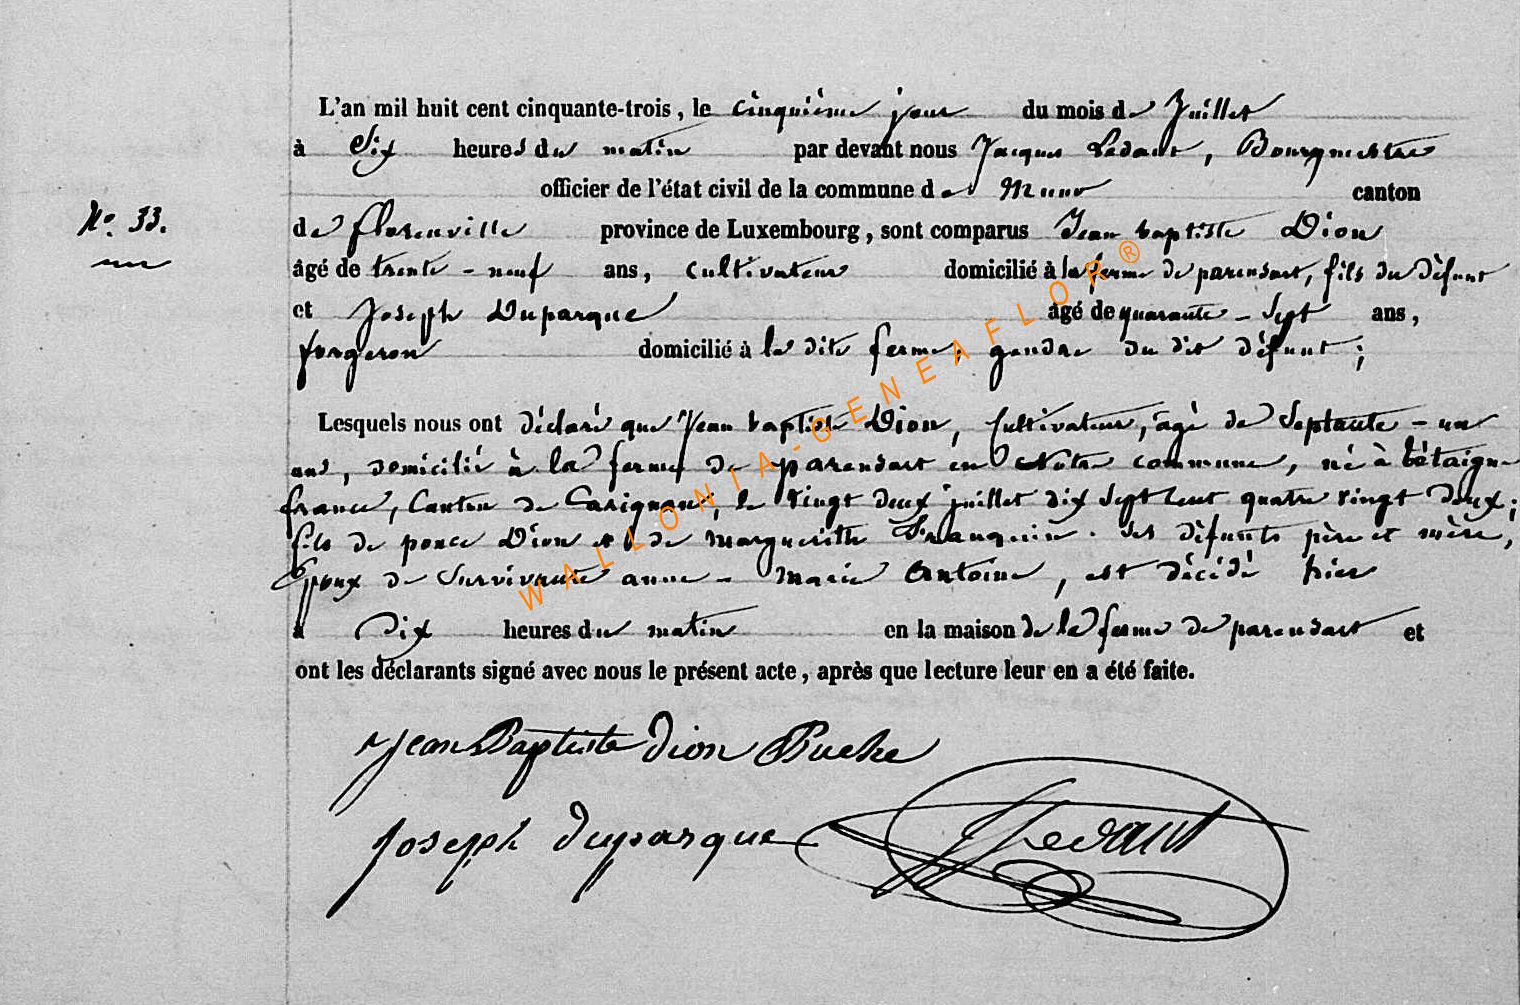 L'an mil huit cent cinquante-trois, le cinquième jour du mois de Juillet
à Six heures du matin par devant nous Jacques Ledant, Bourgmestre
officier de l'état civil de la commune de Muno canton
N°. 33. de florenville province de Luxembourg, sont comparus Jean baptiste Dion
âgé de trente-neuf ans, cultivateur domicilié à la ferme de parensart, fils du défunt
et Joseph Duparque âgé de quarante-Sept ans,
forgeron domicilié à la dite ferme, gendre du dit défunt;
Lesquels nous ont déclaré que Jean baptiste Dion, Cultivateur, âgé de Septante-un
ans, domicilié à la ferme de parensart en Notre commune, né à
france, Canton de Carignan, le vingt deux juillet dix Sept Cent quatre vingt deux;
fils de ponce Dion et de Marguerith Franquin. Ses défunts père et mère,
Epoux de Survivante anne-Marie Antoine, est décédé hier
à Dix heures du matin en la maison de la ferme de parensart et
ont les déclarants signé avec nous le présent acte, après que lecture leur en a été faite.
Jean Baptiste Dion
Joseph Duparque JLedant
WALLONIA-GENEAFLOR®